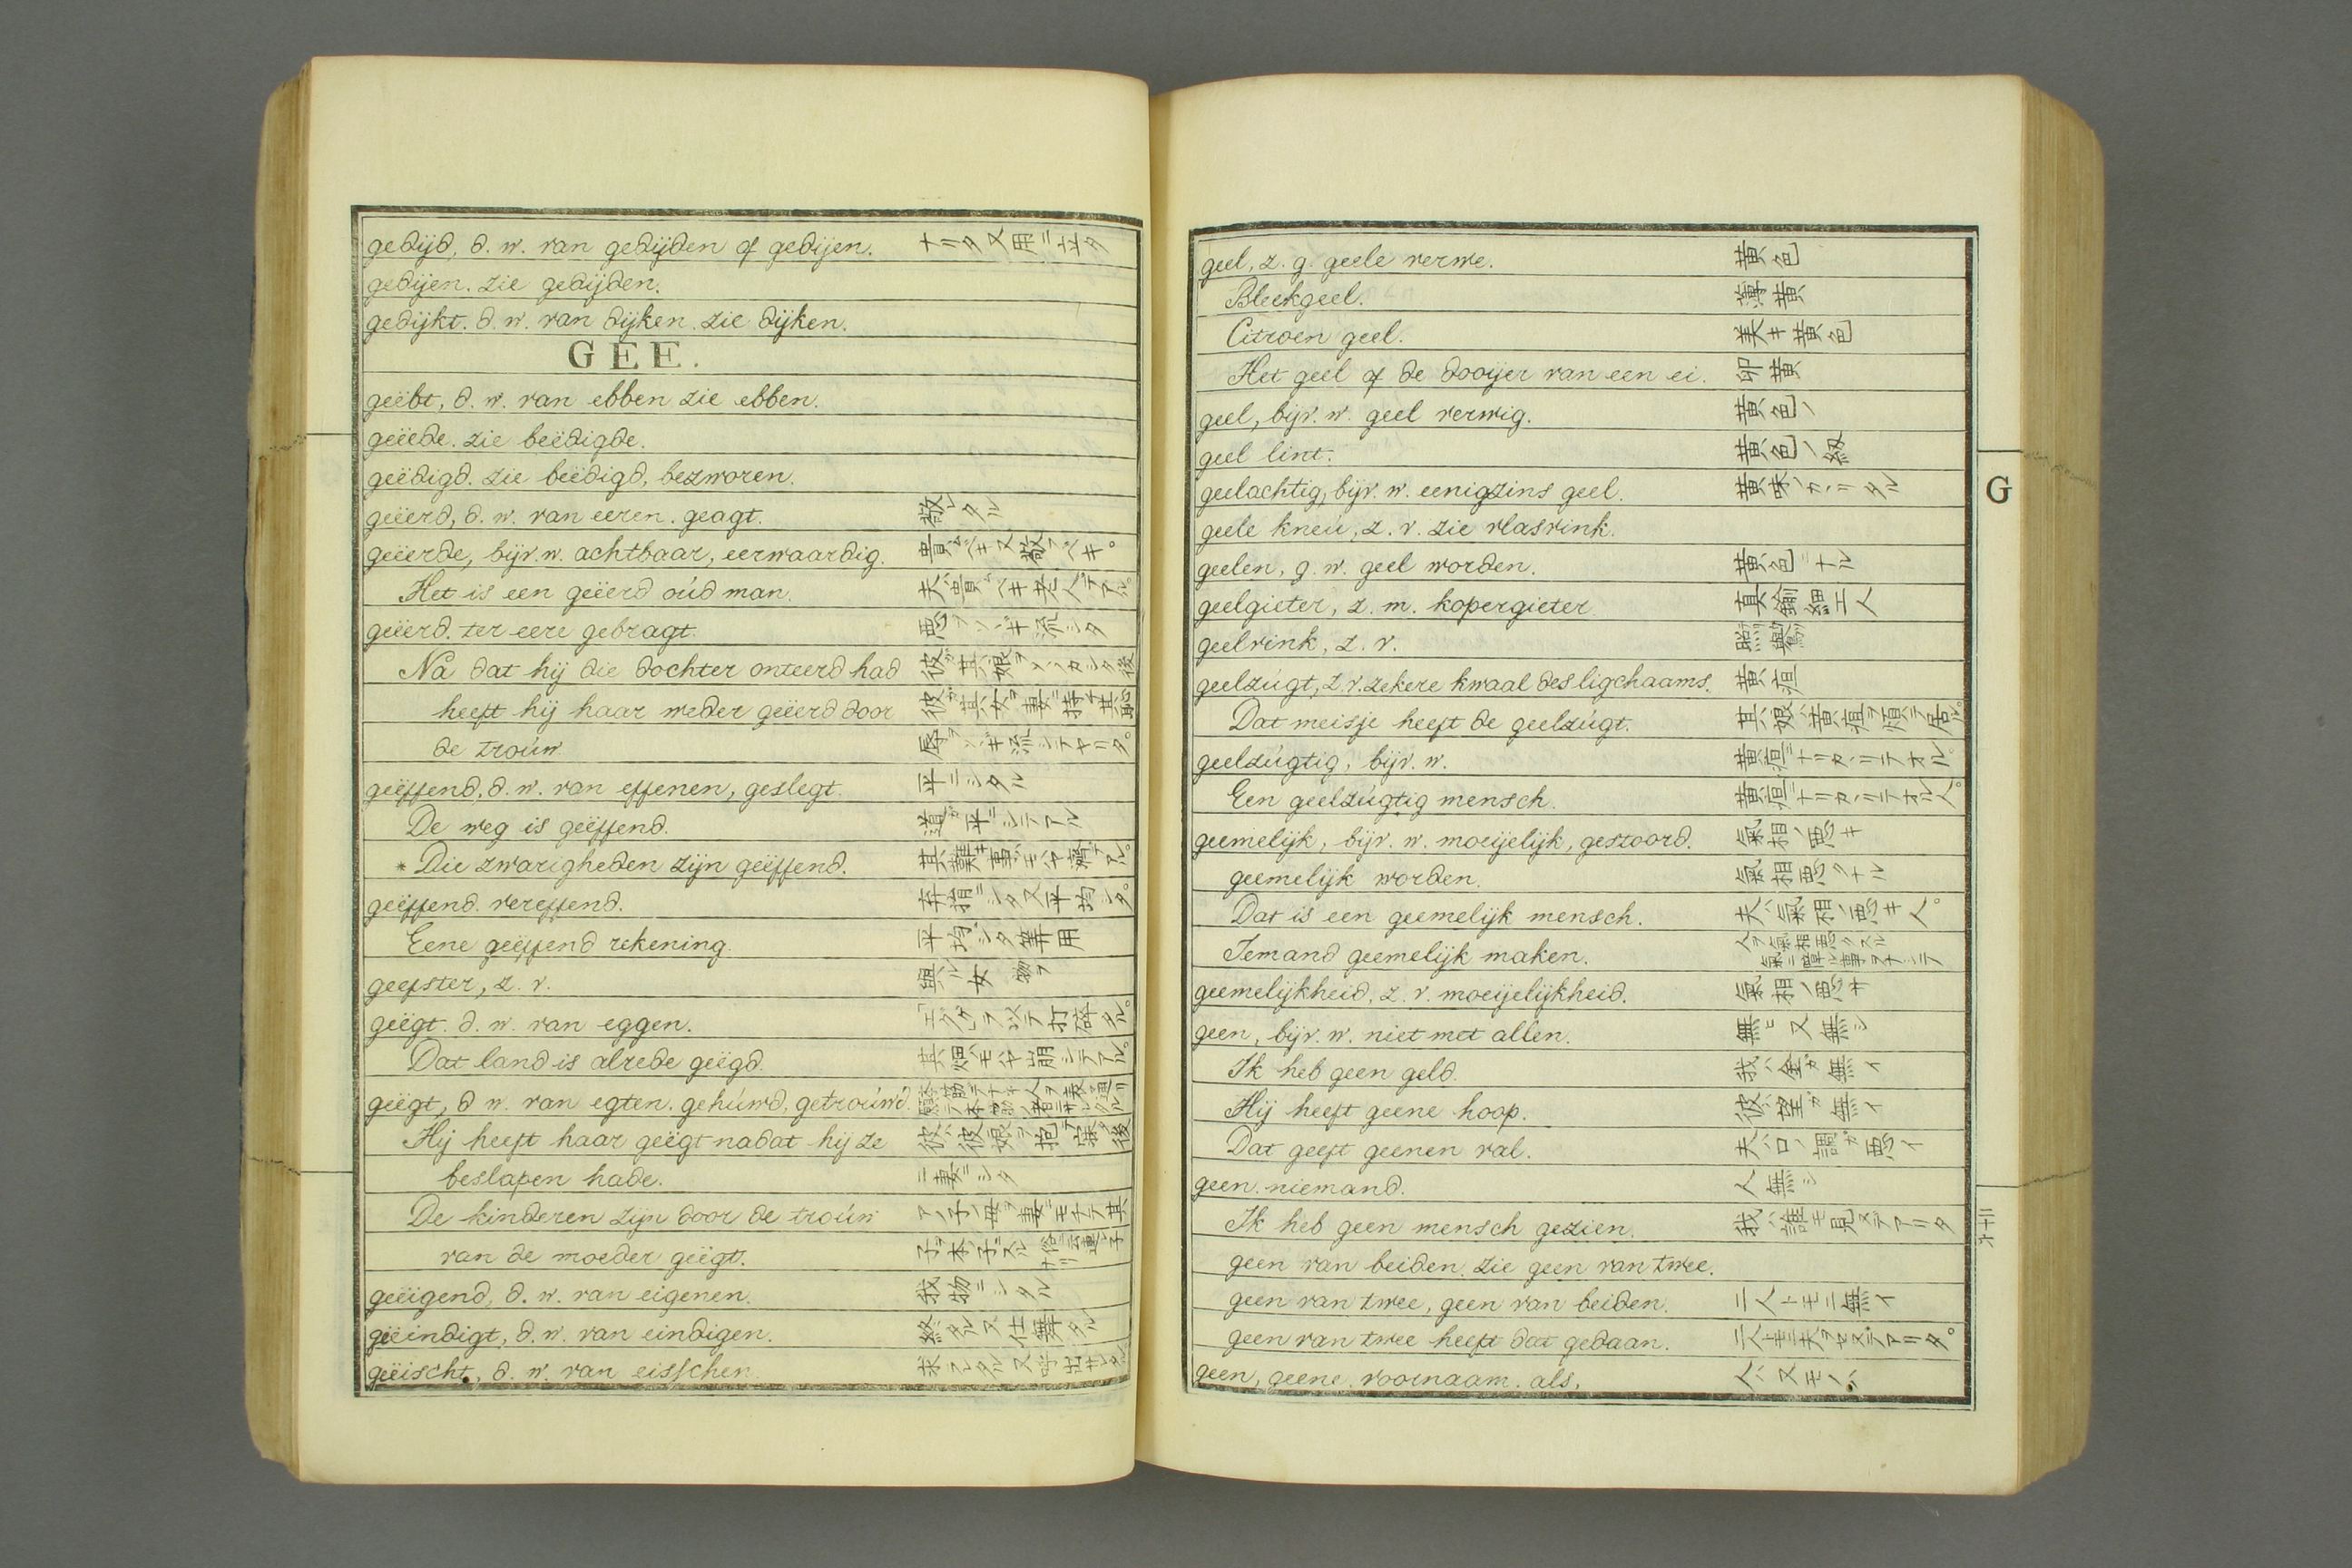 gedijd, d. w. van gedijden of gedijen. ナリタ又用ニ立タ
gedijen. zie gedijden.
gedijkt. d. w. van dijken. zie dijken.
GEE.
geëbt, d. w. van ebben zie ebben.
geëede. zie beëdigde.
geëdigd. zie beëdigd, bezworen.
geëerd, d. w. van eeren. geagt. 敬レタル
geëerde, bijv. w. achtbaar, eerwaardig. 貴ブベキ又敬フベキ。
Het is een geëerd oúd man. 夫ハ貴ブベキ老人デアル。
geëerd. ter eere gebragt. 悪ヲソヽギ流シタ
Na dat hij die dochter onteerd had 彼ガ其娘ヲ後
heeft hij haar weder geëerd door 彼ガ其女ヲ妻ニ持テ其恥
de troúw 辱ヲソヽギ流シテヤリタ。
geëffend, d. w. van effenen, geslegt. 平ニシタル
De weg is geëffend. 道ガ平ニシテアル
* Die zwarigheden zijn geëffend. 其難キ事ハモハヤ濟テアル。
geëffend. vereffend. 弁指ニシタ又平均シタ。
Eene geëffend rekening. 平均シタ筭用
geefster, z. v. 與ル女 物ヲ
geëgt. d. w. van eggen. 「エグゲ」ヲ以テ打碎タル。
Dat land is alrede geëgd. 其畑ハモハヤ崩シテアル。
geëgt, d w. van egten. gehúwd, getroúwd.
Hij heeft haar geëgt nadat hij ze 彼ハ彼娘ヲ抱テ寐タ後
beslapen hade. ニ妻ニシタ
De kinderen zijn door de troúw アノ子ハ母ヲ妻ニモチテ其
van de moeder geëgt. 子ガ本ノ子ニスル 俗ニ云連子ナリ
geëigend, d. w. van eigenen. 我物ニシタル
geëindigt, d. w. van eindigen. 終タル又仕舞タル
geëischt, d. w. van eisschen. 求レタル又呼出サレタル
geel, z. g. geele verwe. 黄色
Bleekgeel. 薄黄
Citroen geel. 美キ黄色
Het geel of de dooijer van een ei. 卵黄
geel, bijv. w. geel verwig. 黄色ノ
geel lint. 黄色ノ紐
geelachtig, bijv. w. eenigzins geel. 黄味ガカヽリタル
geele kneú, z. v. zie vlasvink.
geelen, g. w. geel worden. 黄色ニナル
geelgieter, z. m. kopergieter. 真鍮細工人
geelvink, z. v.
geelzúgt, z. v. zekere kwaal des ligchaams. 黄疸
Dat meisje heeft de geelzúgt. 其娘ハ黄疸ヲ煩テ居ル。
geelzúgtig, bijv. w. 黄疸ニナリカヽリテオル。
Een geelzúgtig mensch. 黄疸ニナリカヽリテオル人。
geemelijk, bijv. w. moeijelijk, gestoord. 氣相ノ悪キ
geemelijk worden. 氣相悪クナル
Dat is een geemelijk mensch. 夫ハ氣相ノ悪キ人。
Iemand geemelijk maken. 人ヲ氣相悪クスル 氣ニ障ル事ヲナシテ
geemelijkheid, z. v. moeijelijkheid. 氣相ノ悪サ
geen, bijv. w. niet met allen. 無ヒ又無シ
Ik heb geen geld. 我ハ金ガ無イ
Hij heeft geene hoop. 彼ハ望ガ無イ
Dat geeft geenen val. 夫ハ口ノ調ガ悪イ
geen. niemand. 人無シ
Ik heb geen mensch gezien. 我ハ誰モ見ズデアリタ
geen van beiden. zie geen van twee.
geen van twee, geen van beiden. 二人トモニ無イ
geen van twee heeft dat gedaan. 二人トモニ夫ヲセズデアリタ。
geen, geene. voornaam. als,
G